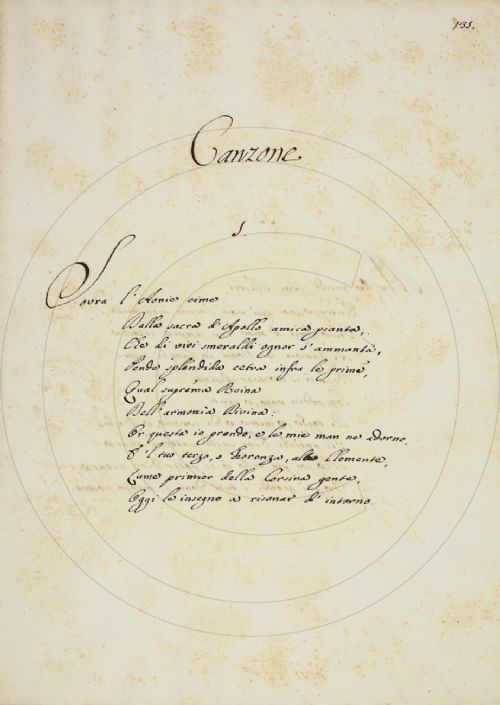 131.
Canzone
1.
Sovra l'Aonie cime
Dalla sacra d'Apollo amica pianta,
Che di vivi smeraldi ognor s'ammanta,
Pende splendida cetra infra le prime,
Qual suprema Reina
Dell'armonia Divina:
Or questa io prendo, e le mie man ne adorno,
E'l tuo terzo, o Fiorenza, Clemente,
Come primier della Corsina gente,
Oggi le insegno a risonar d'intorno.